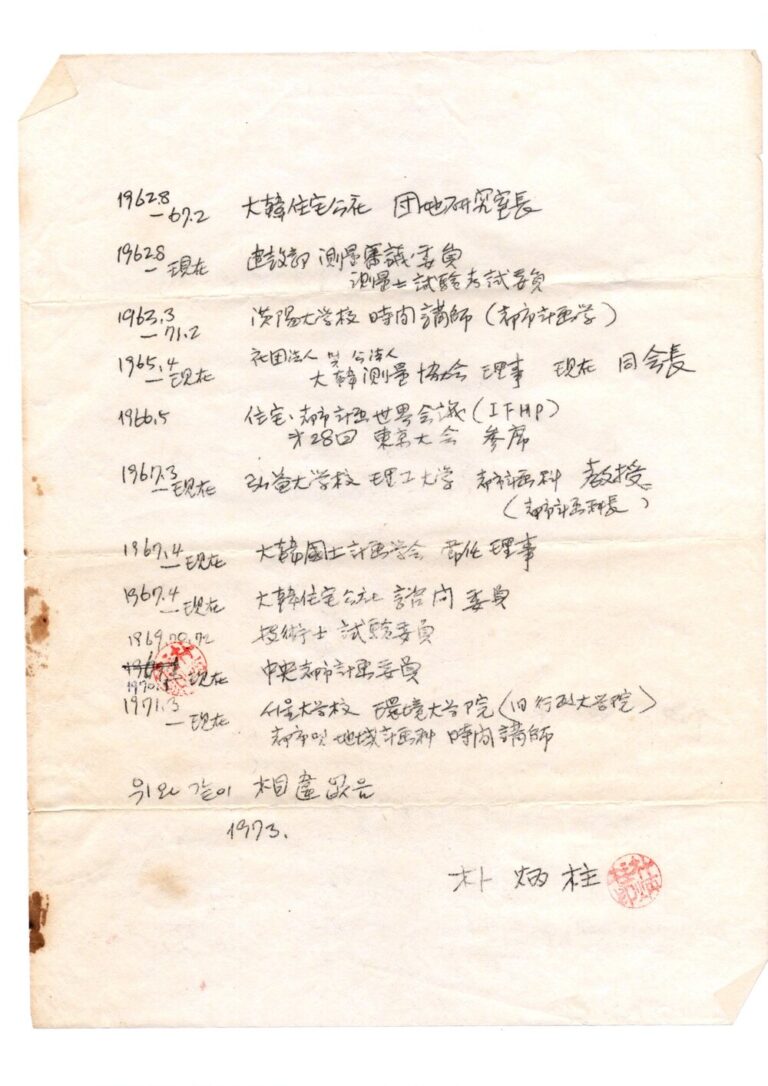 1962.8
—67.2 大韓住宅公社 団地研究室長
1962.8
— 現在 建設部 測量審議委員
測量士試験考試委員
1963.3
— 71.2 漢陽大学校 時間講師 (都市計画学)
1965.4
—現在 社団法人 및 公法人
大韓測量協会 理事 現在 同会長
1966.5 住宅·都市計画世界会議 (IFHP)
才28回 東京大会 参席
1967.3
—現在 弘益大学校 理工大学 都市計画科 教授
(都市計画科長)
1967.4
—現在 大韓國土計画学会 常任理事
1967.4
—現在 大韓住宅公社 諮问委員
1969.70.72 技術士 試験委員
1970.1 現在 中央都市計画委員
1971.3
—現在 서울大学校 環境大学院 (旧行政大学院)
都市및地域計画科 時间講師
위와 같이 相違없음
1973.
朴炳柱